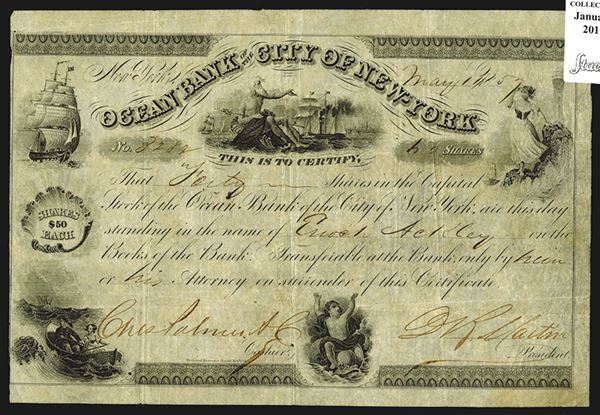 COLLEC
Janua
201
Stac
New York, May 1st 57
OCEAN BANK OF THE CITY OF NEW-YORK
No. SHARES
THIS IS TO CERTIFY,
That Forty Shares in the Capital
Stock of the Ocean Bank of the City of New York, are this day
standing in the name of Enoch Ackley on the
Books of the Bank. Transferable at the Bank, only by him
or his Attorney on surrender of this Certificate
SHARES
$50
EACH
Cashier.
Martin
President.